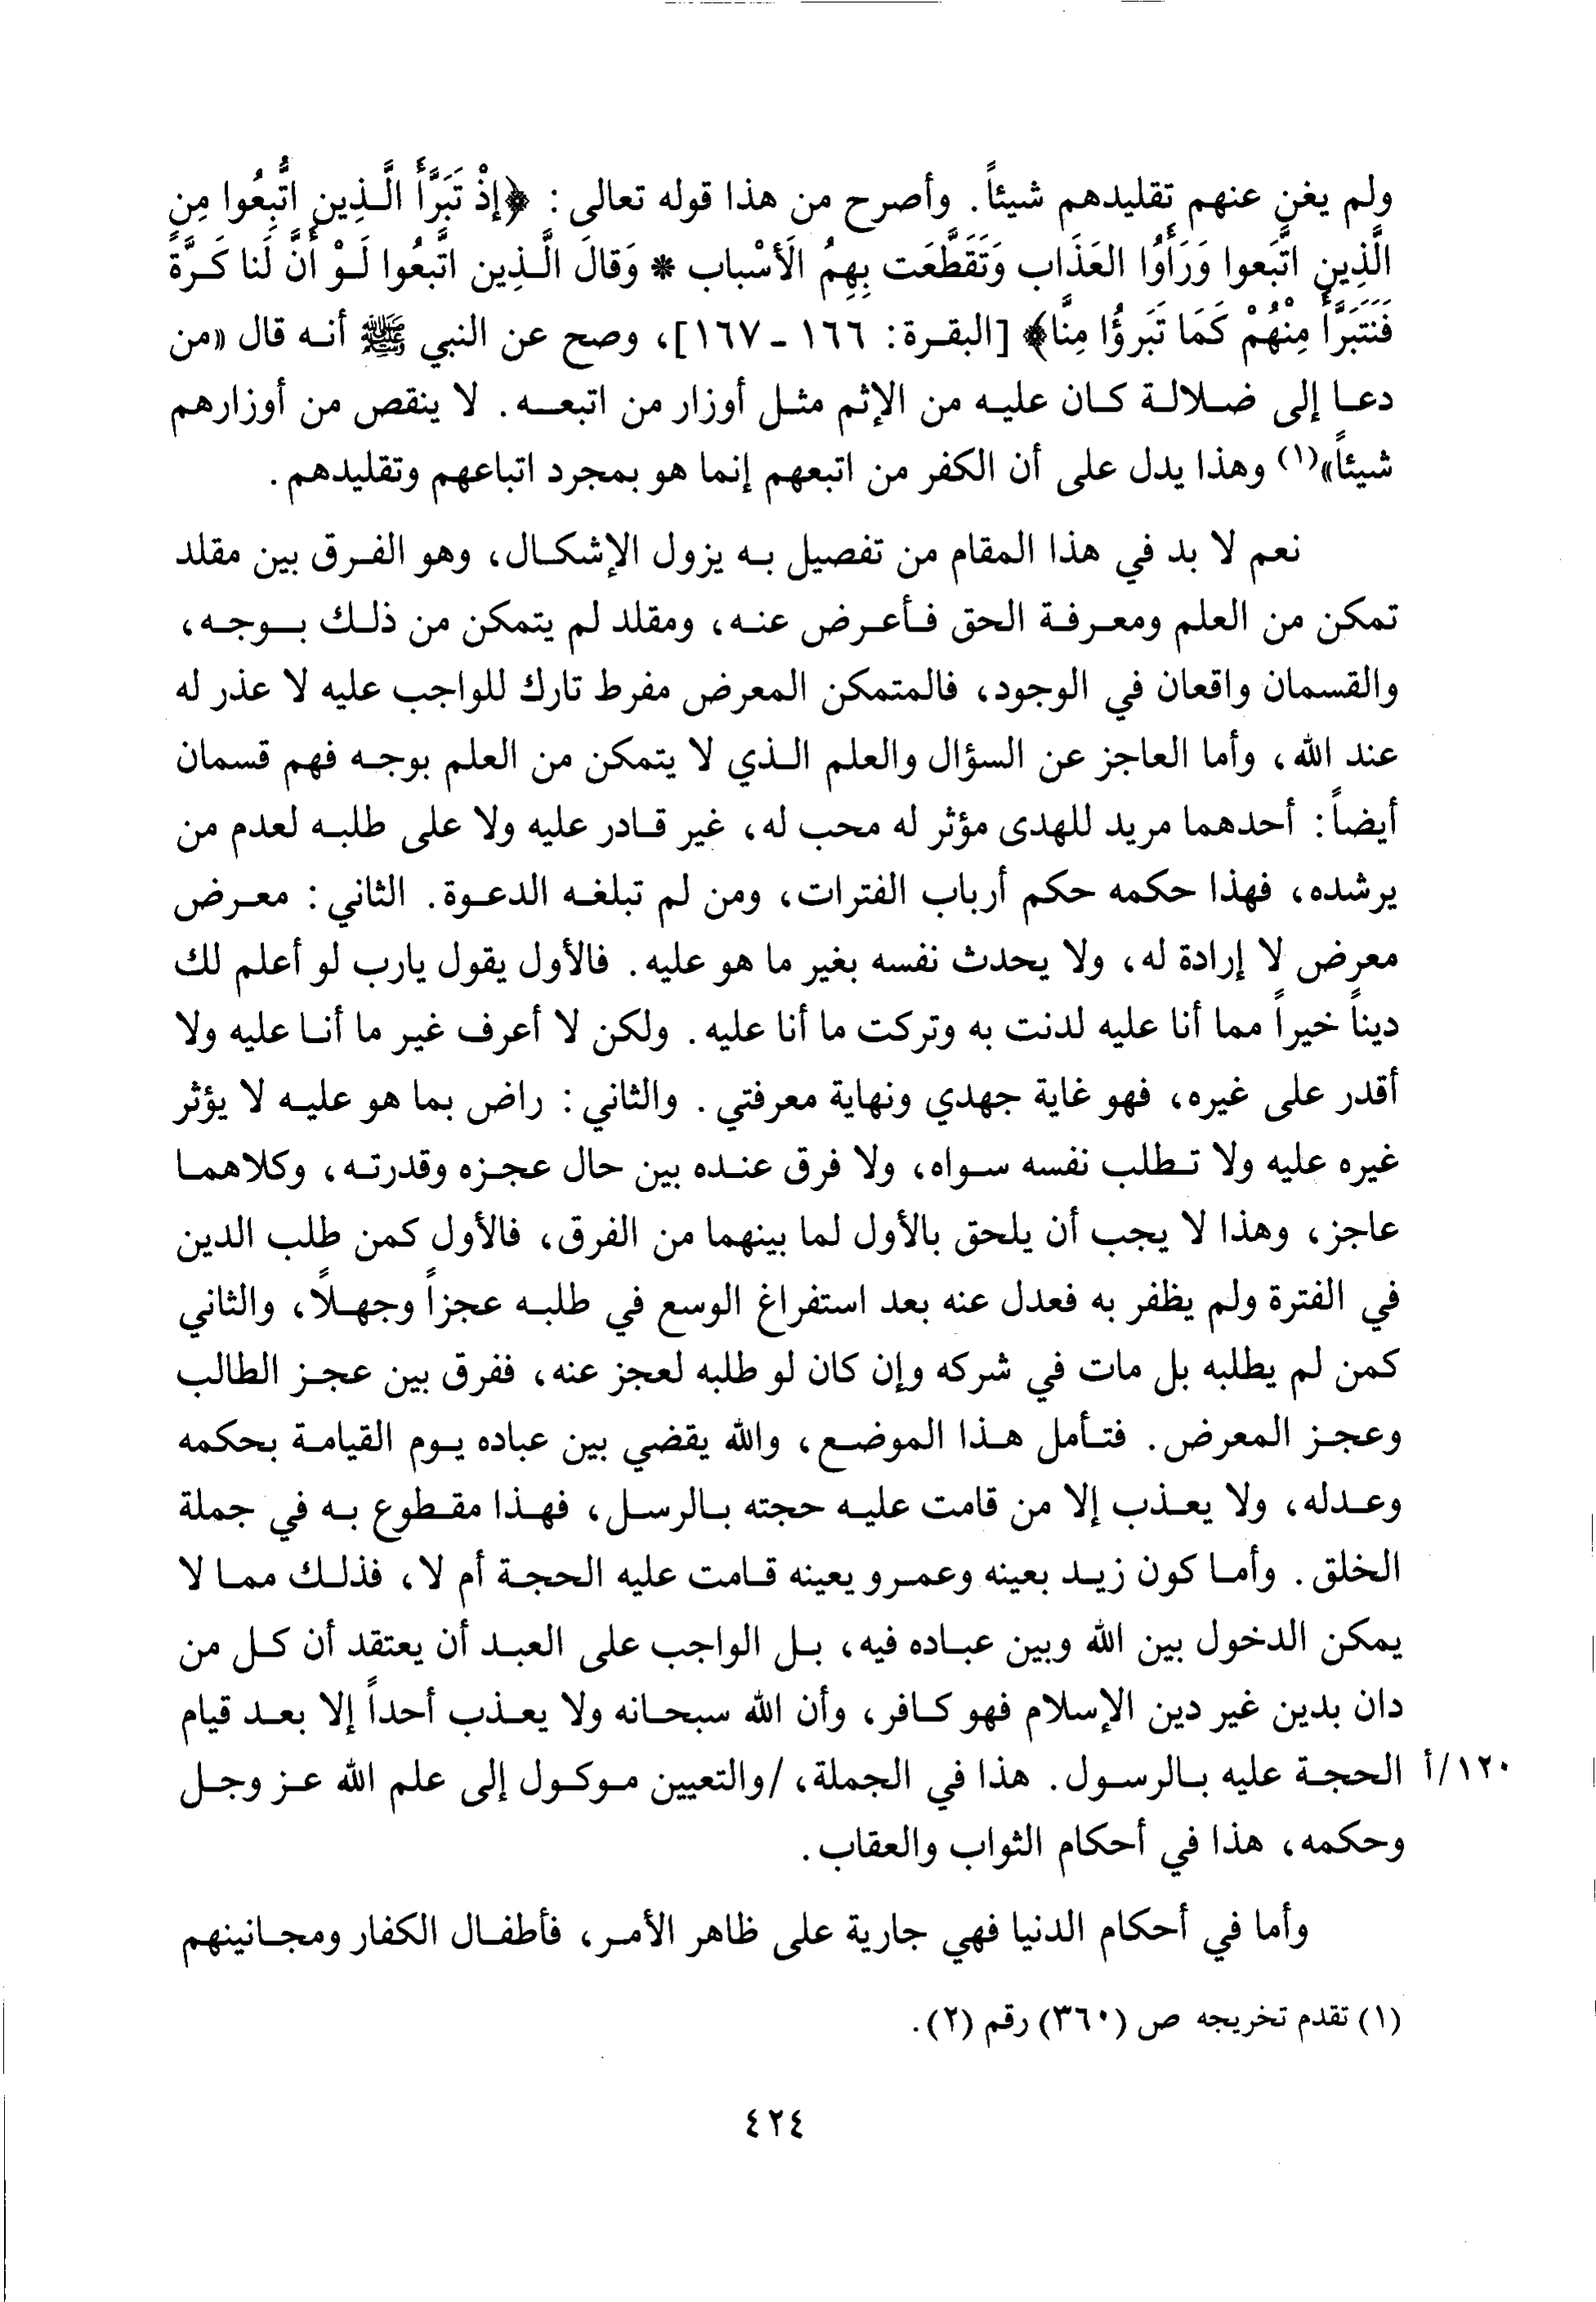 ولم يغن عنهم تقليدهم شيئاً. وأصرح من هذا قوله تعالى: ﴿إذْ تَبَرَّأَ الَّـذِين اتُّبِعُوا مِنِ
الَّذِينِ اتَّبَعوا وَرَأَوُا العَذَاب وَتَقَطَّعَت بِهِمُ الَأسْباب * وَقالَ الَّـذِين اتَّبعُوا لَـوْ أَنَّ لَنا كَـرَّةً
فَنَتَبَرَّأَ مِنْهُمْ كَمَا تَبَرؤُا مِنَّا﴾ [البقـرة: ١٦٦ - ١٦٧]، وصح عن النبي ﷺ أنـه قال «من
دعـا إلى ضـلالـة كـان عليـه من الإثم مثـل أوزار من اتبعـه. لا ينقص من أوزارهم
شيئاً»(١) وهذا يدل على أن الكفر من اتبعهم إنما هو بمجرد اتباعهم وتقليدهم.
نعم لا بد في هذا المقام من تفصيل بـه يزول الإشكـال، وهو الفـرق بين مقلد
تمكن من العلم ومعـرفـة الحق فـأعـرض عنـه، ومقلد لم يتمكن من ذلـك بـوجـه،
والقسمان واقعان في الوجود، فالمتمكن المعرض مفرط تارك للواجب عليه لا عذر له
عند الله، وأما العاجز عن السؤال والعلم الـذي لا يتمكن من العلم بوجـه فهم قسمان
أيضاً: أحدهما مريد للهدى مؤثر له محب له، غير قـادر عليه ولا على طلبـه لعدم من
يرشده، فهذا حكمه حكم أرباب الفترات، ومن لم تبلغـه الدعـوة. الثاني: معـرض
معرض لا إرادة له، ولا يحدث نفسه بغير ما هو عليه. فالأول يقول يارب لو أعلم لك
ديناً خيراً مما أنا عليه لدنت به وتركت ما أنا عليه. ولكن لا أعرف غير ما أنـا عليه ولا
أقدر على غيره، فهو غاية جهدي ونهاية معرفتي. والثاني: راض بما هو عليـه لا يؤثر
غيره عليه ولا تـطلب نفسه سـواه، ولا فرق عنـده بين حال عجـزه وقدرتـه، وكلاهمـا
عاجز، وهذا لا يجب أن يلحق بالأول لما بينهما من الفرق، فالأول كمن طلب الدين
في الفترة ولم يظفر به فعدل عنه بعد استفراغ الوسع في طلبـه عجزاً وجهـلاً، والثاني
كمن لم يطلبه بل مات في شركه وإن كان لو طلبه لعجز عنه، ففرق بين عجـز الطالب
وعجـز المعرض. فتـأمل هـذا الموضـع، والله يقضي بين عباده يـوم القيامـة بحكمه
وعـدله، ولا يعـذب إلا من قامت عليـه حجته بـالرسـل، فهـذا مقـطوع بـه في جملة
الخلق. وأمـا كون زيـد بعينه وعمـرو يعينه قـامت عليه الحجـة أم لا، فذلـك ممـا لا
يمكن الدخول بين الله وبين عبـاده فيه، بـل الواجب على العبـد أن يعتقد أن كـل من
دان بدين غير دين الإسلام فهو كـافر، وأن الله سبحـانه ولا يعـذب أحداً إلا بعـد قيام
١٢٠/أ الحجـة عليه بـالرسـول. هذا في الجملة، /والتعيين مـوكـول إلى علم الله عـز وجـل
وحكمه، هذا في أحكام الثواب والعقاب.
وأما في أحكام الدنيا فهي جارية على ظاهر الأمـر، فأطفـال الكفار ومجـانينهم
(١) تقدم تخريجه ص (٣٦٠) رقم (٢).
٤٢٤